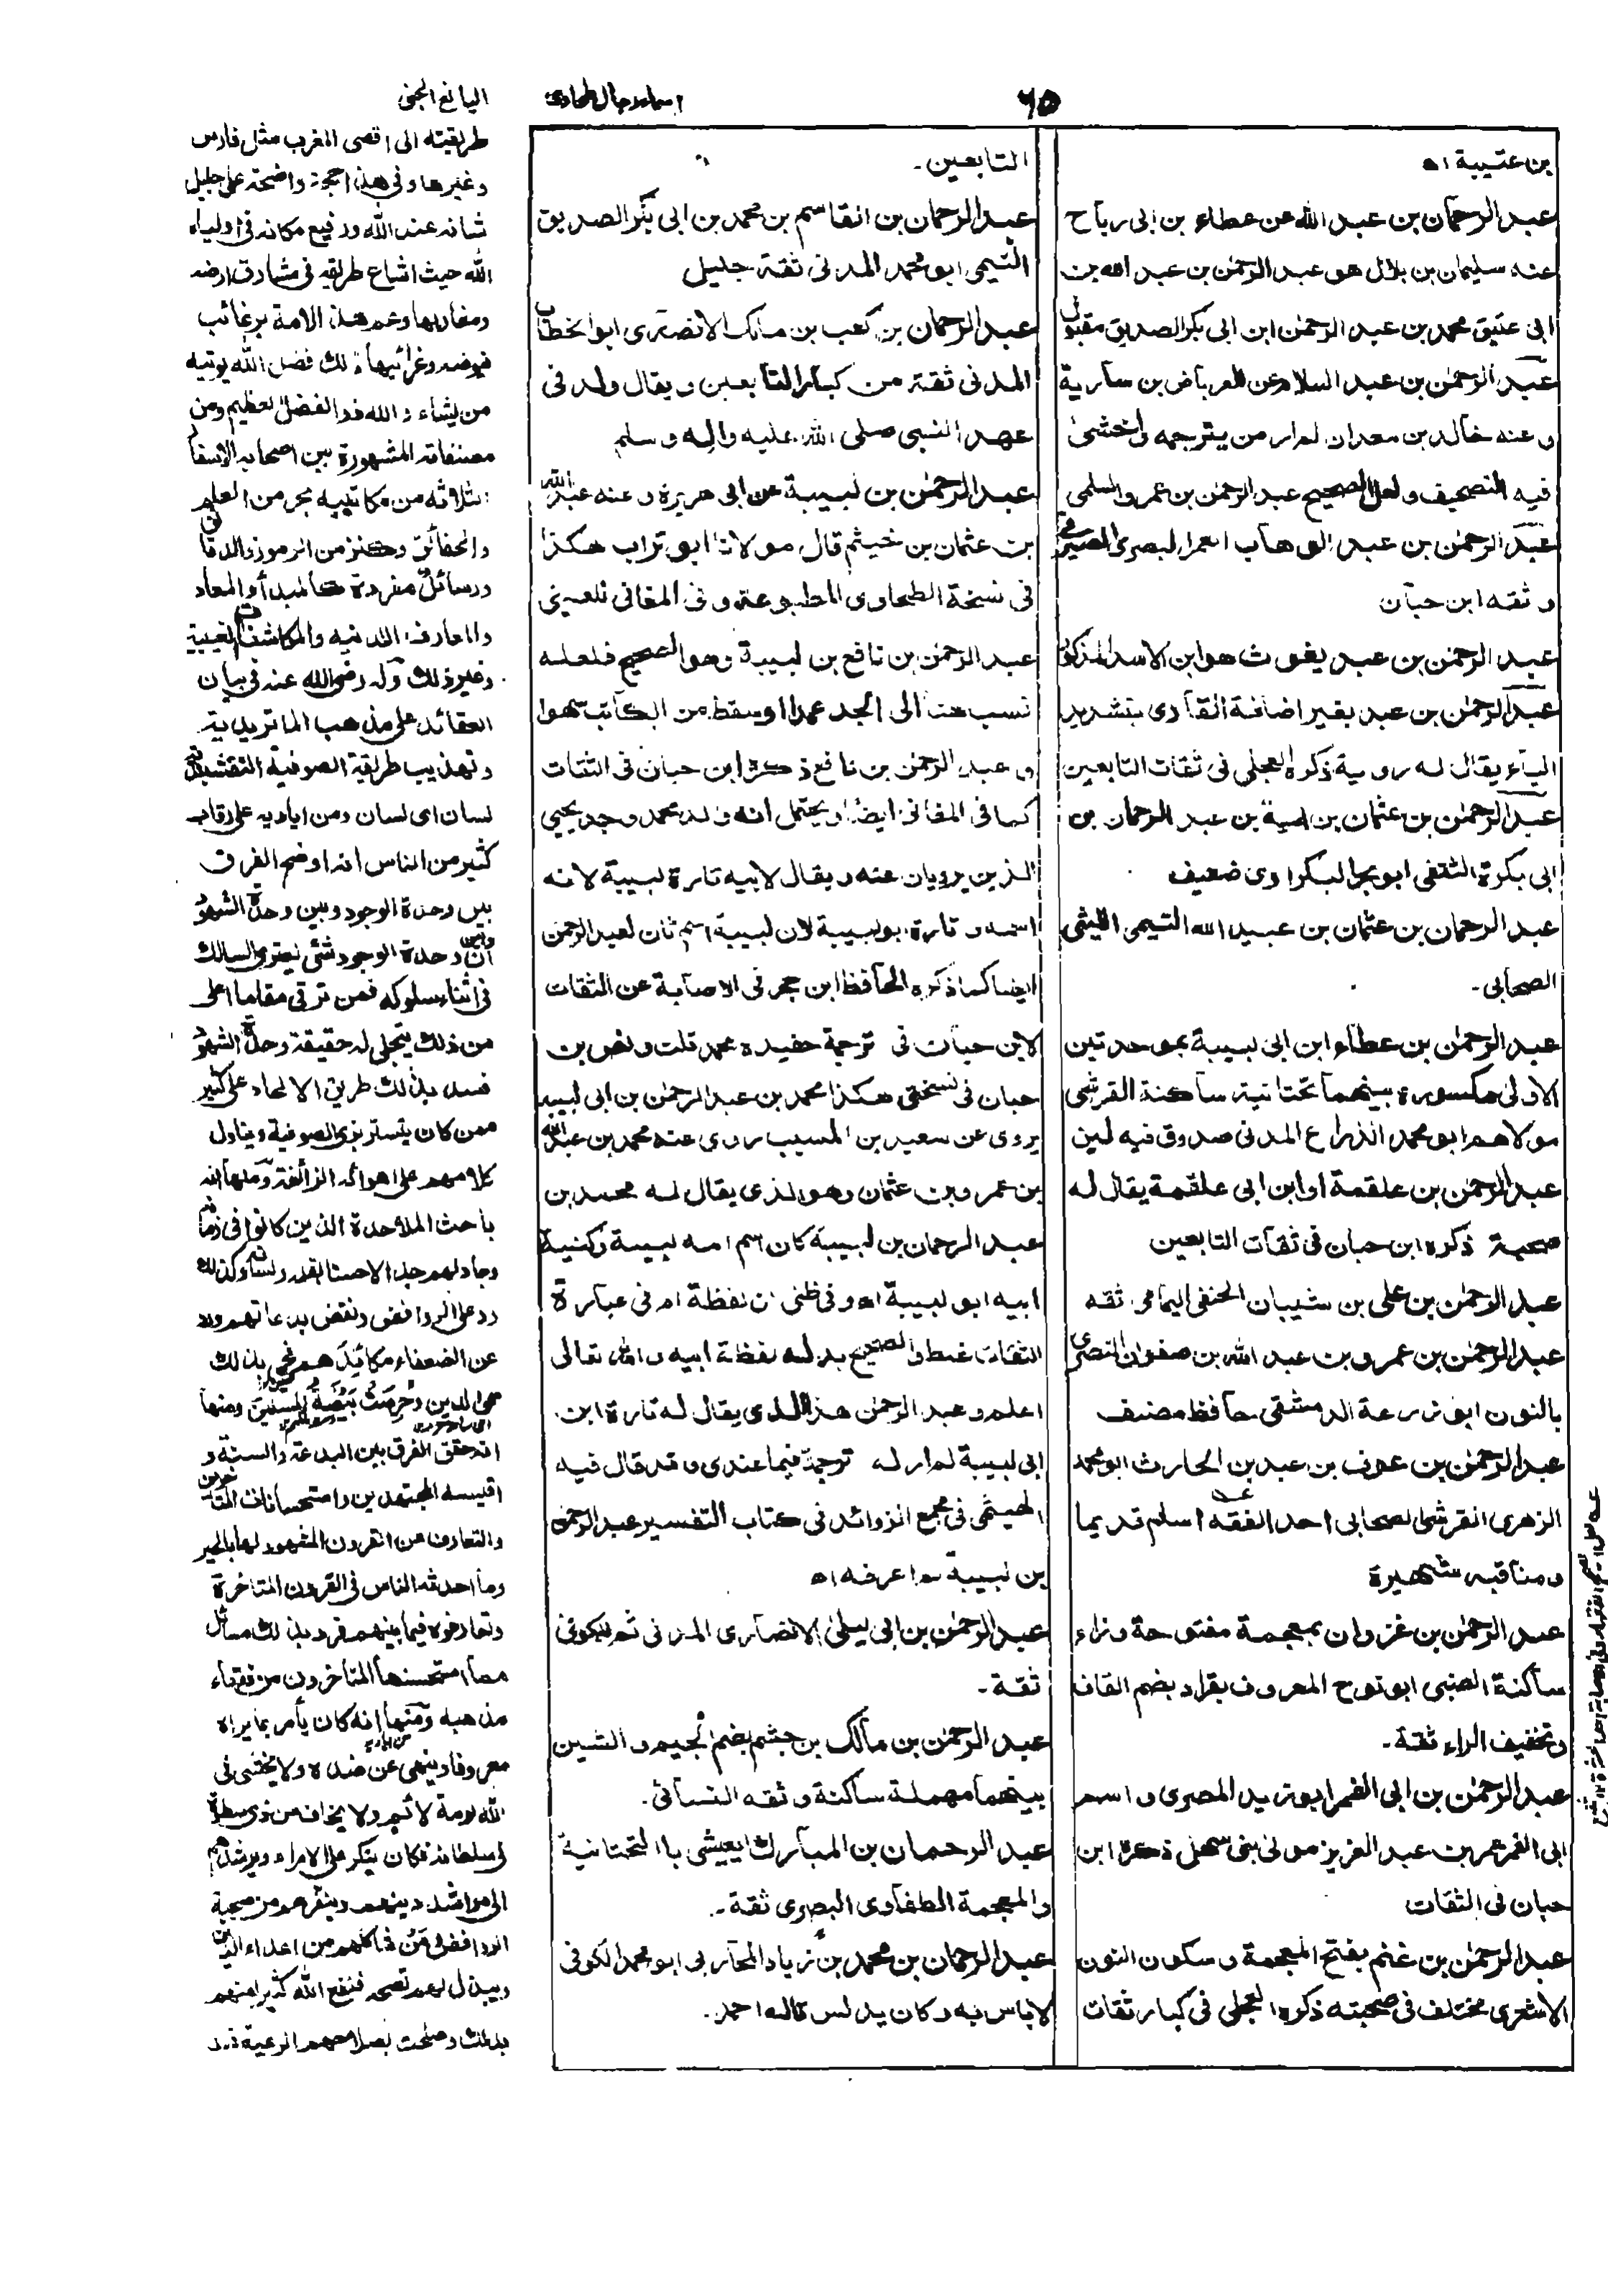 ٦٥
اسماء رجال طحاوی
اليانع الجنی
بن عتيبة اه
عبد الرحمان بن عبد الله عن عطاء بن ابی رباح
عنه سليمان بن بلال هو عبد الرحمٰن بن عبد الله بن
ابی عتيق محمد بن عبد الرحمٰن ابن ابی بكر الصديق مقبول
عبد الرحمٰن بن عبد السلام عن العرباض بن سارية
وعنه خالد بن معدان لم ار من يترجمه واخشیٰ
فيه التصحيف ولعل الصحيح عبد الرحمٰن بن عمرو السلمی
عبد الرحمٰن بن عبد الوهاب العمی البصری الصيرفی
وثقه ابن حبان
عبد الرحمٰن بن عبد يغوث هو ابن الاسد المذكور
عبد الرحمٰن بن عبد بغير اضافة القاری بتشديد
الياء يقال له روية ذكره العجلی فی ثقات التابعين
عبد الرحمٰن بن عثمان بن امية بن عبد الرحمان بن
ابی بكرة الثقفی ابو بحر البكراوی ضعيف
عبد الرحمان بن عثمان بن عبيد الله التيمی الليثی
الصحابی۔
عبد الرحمٰن بن عطاء ابن ابی لبيبة بموحدتين
الاولیٰ مكسورة بينهما تحتانية ساكنة القرشی
مولاهم ابو محمد الذراع المدنی صدوق فيه لين
عبد الرحمٰن بن علقمة او ابن ابی علقمة يقال له
صحبة ذكره ابن حبان فی ثقات التابعين
عبد الرحمٰن بن علی بن شيبان الحنفی اليمامی ثقه
عبد الرحمٰن بن عمرو بن عبد الله بن صفوان النصری
بالنون ابو زرعة الدمشقی حافظ مصنف
عبد الرحمٰن بن عوف بن عبد بن الحارث ابو محمد
الزهری القرشی الصحابی احد الفقه اسلم قديما
ومناقبه شهيرة
عبد الرحمٰن بن غزوان بمعجمة مفتوحة وزاء
ساكنة الضبی ابو نوح المعروف بقراد بضم القاف
وتخفيف الراء ثقة۔
عبد الرحمٰن بن ابی الغمر ابو زيد المصری واسم
ابی الغمر عمر بن عبد العزيز مولیٰ بنی سهل ذكره ابن
حبان فی الثقات
عبد الرحمٰن بن غنم بفتح المعجمة وسكون النون
الاشعری مختلف فی صحبته ذكره العجلی فی كبار ثقات
التابعين۔
عبد الرحمان بن القاسم بن محمد بن ابی بكر الصديق
التيمی ابو محمد المدنی ثقة جليل
عبد الرحمان بن كعب بن مالك الانصاری ابو الخطاب
المدنی ثقة من كبار التابعين ويقال ولد فی
عهد النبی صلی الله عليه واله وسلم
عبد الرحمٰن بن لبيبة عن ابی هريرة وعنه عبد الله
بن عثمان بن خيثم قال مولانا ابو تراب هكذا
فی نسخة الطحاوی المطبوعة وفی المغانی للعينی
عبد الرحمٰن بن نافع بن لبيبة وهو الصحيح فلعله
نسب هنا الی الجد عمدا او سقط من الكاتب سهوا
وعبد الرحمٰن بن نافع ذكره ابن حبان فی الثقات
كما فی المغانی ايضا ويحتمل انه والد محمد وجد يحيی
الذين يرويان عنه ويقال لابيه تارة لبيبة لانه
اسمه وتارة ابو لبيبة لان لبيبة اسم ثان لعبد الرحمٰن
ايضا كما ذكره الحافظ ابن حجر فی الاصابة عن الثقات
لابن حبان فی ترجمة حفيده محمد قلت ونص بن
حبان فی نسختی هكذا محمد بن عبد الرحمٰن بن ابی لبيبه
يروی عن سعيد بن المسيب روی عنه محمد بن عبد الله
بن عمرو بن عثمان وهو الذی يقال له محمد بن
عبد الرحمان بن لبيبة كان اسم امه لبيبة وكنية
ابيه ابو لبيبة اه وفی ظنی ان لفظة ام فی عبارة
الثقات غلط والصحيح بدله لفظة ابيه والله تعالی
اعلم وعبد الرحمٰن هذا الذی يقال له تارة ابن
ابی لبيبة لم ار له ترجمة فيما عندی وقد قال فيه
الهيثمی فی مجمع الزوائد فی كتاب التفسير عبد الرحمٰن
بن لبيبة لم اعرفه اه
عبد الرحمٰن بن ابی ليلیٰ الانصاری المدنی ثم الكوفی
ثقة۔
عبد الرحمٰن بن مالك بن جشم بضم الجيم والشين
بينهما مهملة ساكنة وثقه النسائی۔
عبد الرحمان بن المبارك العيشی بالتحتانية
والمعجمة الطفاوی البصری ثقة۔
عبد الرحمان بن محمد بن زياد المحاربی ابو محمد الكوفی
لا باس به وكان يدلس قاله احمد۔
طريقته الی اقصی المغرب مثل فارس
وغيرها وفی هذا حجة واضحة علی جليل
شانه عند الله ورفيع مكانه فی اولياء
الله حيث اشاع طريقه فی مشارق ارضه
ومغاربها وعم هذه الامة برغائب
فيوضه وغرائبها ذلك فضل الله يوتيه
من يشاء والله ذو الفضل العظيم ومن
مصنفاته المشهورة بين اصحابه الاسفار
الثلاثه من مكاتيبه بحر من العلم
والحقائق وكنز من الرموز والدقائق
ورسائل مفردة كالمبدأ والمعاد
والمعارف اللدنيه والمكاشفات الغيبية
وغير ذلك وله رضی الله عنه فی بيان
العقائد علی مذهب الماتريدية
وتهذيب طريقة الصوفية النقشبندية
لسان ای لسان ومن اياديه علی رقاب
كثير من الناس انه اوضح الفرق
بين وحدة الوجود وبين وحدة الشهود
وابان ان وحدة الوجود شئی يعتری السالك
فی اثناء سلوكه فمن ترقی مقاما اعلی
من ذلك يتجلی له حقيقة وحدة الشهود
فسد بذلك طريق الالحاد علی كثير
ممن كان يتستر بزی الصوفية ويتاول
كلامهم علی اهوائه الزائغة ومنها انه
باحث الملاحدة الذين كانوا فی زمانه
وجادلهم جدالا حسنا بقلمه ولسانه وكذلك
رد علی الروافض ونقض بدعاتهم ورد
عن الضعفاء مكائدهم فحمی بذلك
حمی الدين وحرمت بيضة المسلمين ومنها
انه حقق الفرق بين البدعة والسنة و
اقيسة المجتهدين واستحسانات المتاخرين
والتعارف عن القرون المشهود لها بالخير
وما احدثه الناس فی القرون المتاخرة
وتعارفوه فيما بينهم فرد بذلك مسائل
مما استحسنها المتأخرون من فقهاء
مذهبه ومنها انه كان يأمر بما يراه
معروفا وينهی عن ضده ولا يخشی فی
الله لومة لائم ولا يخاف من ذی سطوة
فی سلطانه فكان ينكر علی الامراء ويرشدهم
الی مراشد دينهم وينفرهم من صحبة
الروافض ومن شاكلهم من اعداء الدين
ويبذل لهم نصحه فنفع الله كثيرا منهم
بذلك وصلحت بصلاحهم الرعية